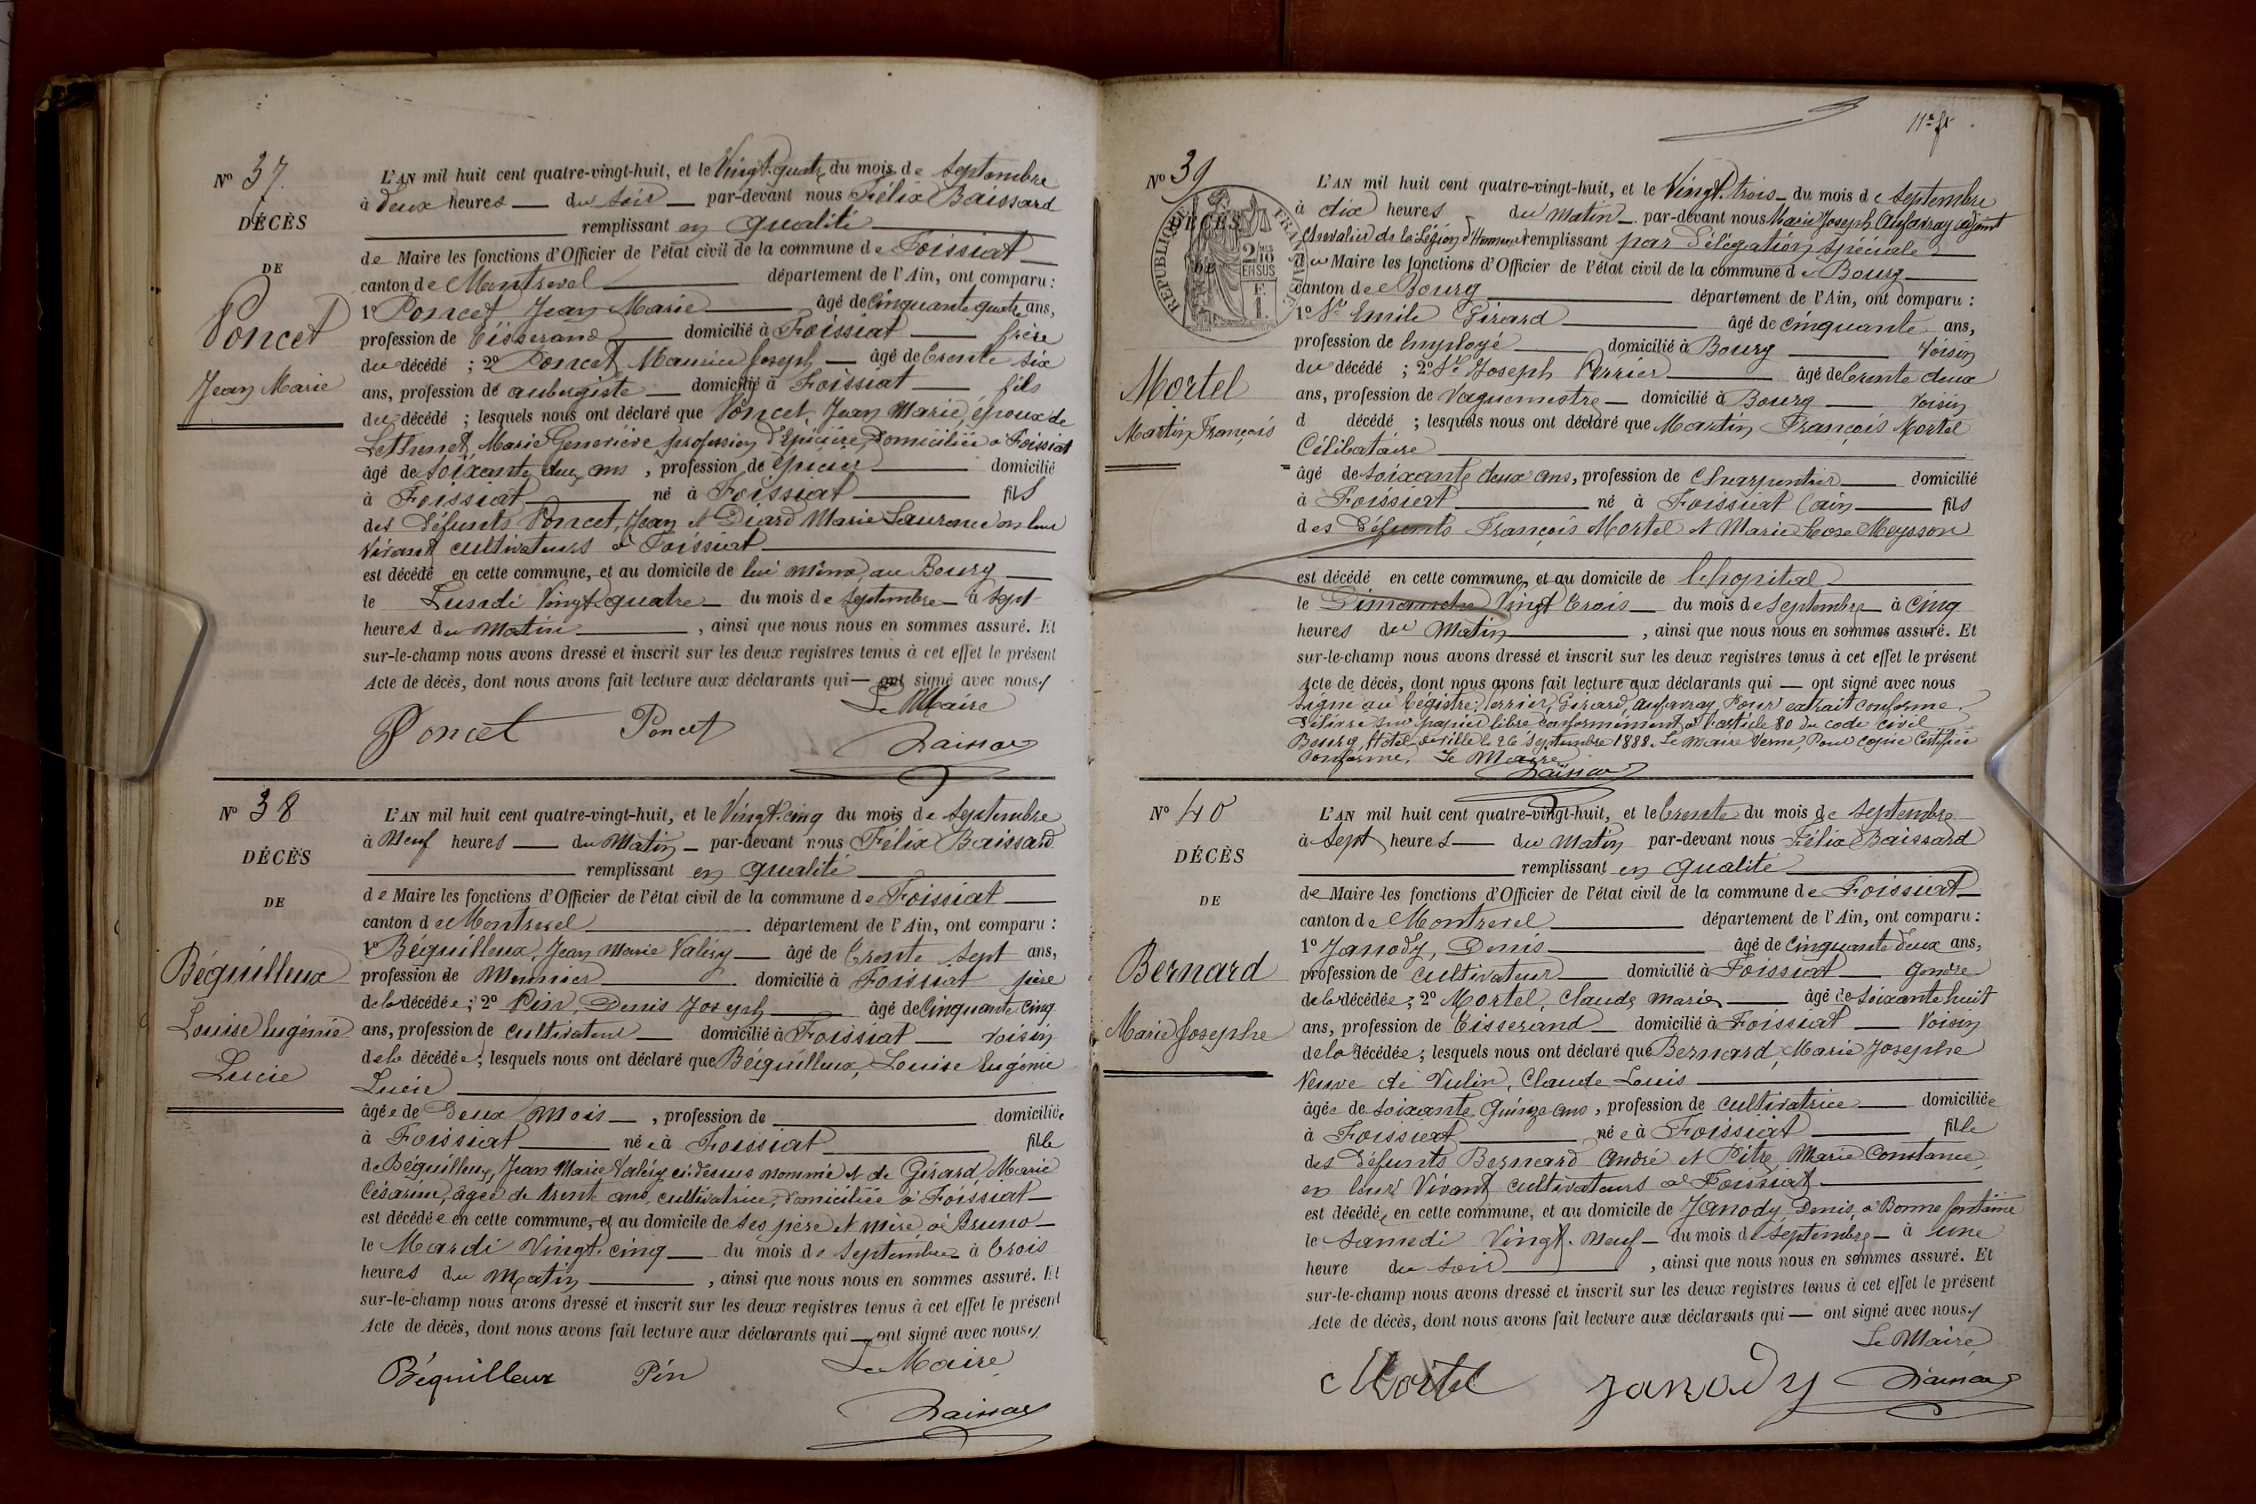 Nº 37
DÉCÈS
DE
Poncet
Jean Marie
L'AN mil huit cent quatre-vingt-huit, et le Vingt-quatre du mois de Septembre
à Deux heures du Soir par-devant nous Félix Baissard
remplissant en qualité
de Maire les fonctions d'Officier de l'état civil de la commune de Foissiat
canton de Montrevel département de l'Ain, ont comparu :
1º Poncet Jean Marie âgé de Cinquante quatre ans,
profession de Tisserand domicilié à Foissiat frère
du décédé ; 2º Poncet, Maurice Joseph âgé de trente six
ans, profession de aubergiste domicilié à Foissiat fils
du décédé ; lesquels nous ont déclaré que Poncet, Jean Marie, époux de
Marie Geneviève, profession d'Epicière, domiciliée à Foissiat
âgé de soixante deux ans, profession de épicier domicilié
à Foissiat né à Foissiat fils
des défunts Poncet, Jean et Diard Marie Laurence en leur
Vivant cultivateurs à Foissiat
est décédé en cette commune, et au domicile de lui même, au Bourg
le Lundi Vingt quatre du mois de Septembre à Sept
heures du Matin , ainsi que nous nous en sommes assuré. Et
sur-le-champ nous avons dressé et inscrit sur les deux registres tenus à cet effet le présent
Acte de décès, dont nous avons fait lecture aux déclarants qui — ont signé avec nous
Le Maire
Poncet Poncet Baissard
Nº 38
DÉCÈS
DE
Béquilleux
Louise Eugénie
Lucie
L'AN mil huit cent quatre-vingt-huit, et le Vingt-cinq du mois de Septembre
à Neuf heures du Matin par-devant nous Félix Baissard
remplissant en qualité
de Maire les fonctions d'Officier de l'état civil de la commune de Foissiat
canton de Montrevel département de l'Ain, ont comparu :
1º Béquilleux, Jean Marie Valéry âgé de trente sept ans,
profession de Meunier domicilié à Foissiat père
de la décédée ; 2º Pin, Denis Joseph âgé de Cinquante cinq
ans, profession de cultivateur domicilié à Foissiat voisin
de la décédée ; lesquels nous ont déclaré que Béquilleux, Louise Eugénie
Lucie
âgée de Deux Mois , profession de domiciliée
à Foissiat née à Foissiat fille
de Béquilleux, Jean Marie Valéry ci-dessus nommé et de Girard, Marie
Césarine, âgée de trente ans, cultivatrice, domiciliée à Foissiat
est décédée en cette commune, et au domicile de ses père et mère, à Bruno
le Mardi Vingt-cinq du mois de Septembre à trois
heures du Matin , ainsi que nous nous en sommes assuré. Et
sur-le-champ nous avons dressé et inscrit sur les deux registres tenus à cet effet le présent
Acte de décès, dont nous avons fait lecture aux déclarants qui — ont signé avec nous
Le Maire
Béquilleux Pin
Baissard
Nº 39
DÉCÈS
DE
RÉPUBLIQUE FRANÇAISE
2/10 EN SUS
F. 1.
Mortel
Martin François
L'AN mil huit cent quatre-vingt-huit, et le Vingt-trois du mois de Septembre
à dix heures du Matin par-devant nous Marie Joseph Aufavray adjoint
Chevalier de la Légion d'Honneur remplissant par Délégation Spéciale
du Maire les fonctions d'Officier de l'état civil de la commune de Bourg
canton de Bourg département de l'Ain, ont comparu :
1º Sr Emile Girard âgé de cinquante ans,
profession de Employé domicilié à Bourg voisin
du décédé ; 2º Sr Joseph Perrier âgé de trente deux
ans, profession de Vaguemestre domicilié à Bourg voisin
d décédé ; lesquels nous ont déclaré que Martin François Mortel
Célibataire
âgé de soixante deux ans, profession de Charpentier domicilié
à Foissiat né à Foissiat (ain fils
des défunts François Mortel et Marie Rose Meysson
est décédé en cette commune, et au domicile de l'hopital
le Dimanche Vingt trois du mois de Septembre à Cinq
heures du Matin , ainsi que nous nous en sommes assuré. Et
sur-le-champ nous avons dressé et inscrit sur les deux registres tenus à cet effet le présent
Acte de décès, dont nous avons fait lecture aux déclarants qui — ont signé avec nous
Signé au Régistre: Perrier, Girard, Aufavray, Pour extrait conforme.
Délivré sur papier libre conformément à l'article 80 du code civil
Bourg, Hotel de ville le 26 Septembre 1888. Le Maire Verne, Pour copie Certifiée
Conforme. Le Maire
Baissard
Nº 40
DÉCÈS
DE
Bernard
Marie Josephe
L'AN mil huit cent quatre-vingt-huit, et le trente du mois de Septembre
à Sept heures du Matin par-devant nous Félix Baissard
remplissant en qualité
de Maire les fonctions d'Officier de l'état civil de la commune de Foissiat
canton de Montrevel département de l'Ain, ont comparu :
1º Janody, Denis âgé de cinquante deux ans,
profession de cultivateur domicilié à Foissiat gendre
de la décédée ; 2º Mortel, Claude Marie âgé de soixante huit
ans, profession de Tisserand domicilié à Foissiat Voisin
de la décédée ; lesquels nous ont déclaré que Bernard, Marie Josephe
Veuve de Vulin, Claude Louis
âgée de soixante Quinze ans, profession de cultivatrice domiciliée
à Foissiat née à Foissiat fille
des défunts Bernard André et Pitre Marie Constance,
en leur Vivant cultivateurs à Foissiat
est décédée en cette commune, et au domicile de Janody Denis, à Bonne fontaine
le Samedi Vingt-neuf du mois de Septembre à une
heure du soir , ainsi que nous nous en sommes assuré. Et
sur-le-champ nous avons dressé et inscrit sur les deux registres tenus à cet effet le présent
Acte de décès, dont nous avons fait lecture aux déclarants qui — ont signé avec nous
Le Maire
Mortel Janody Baissard